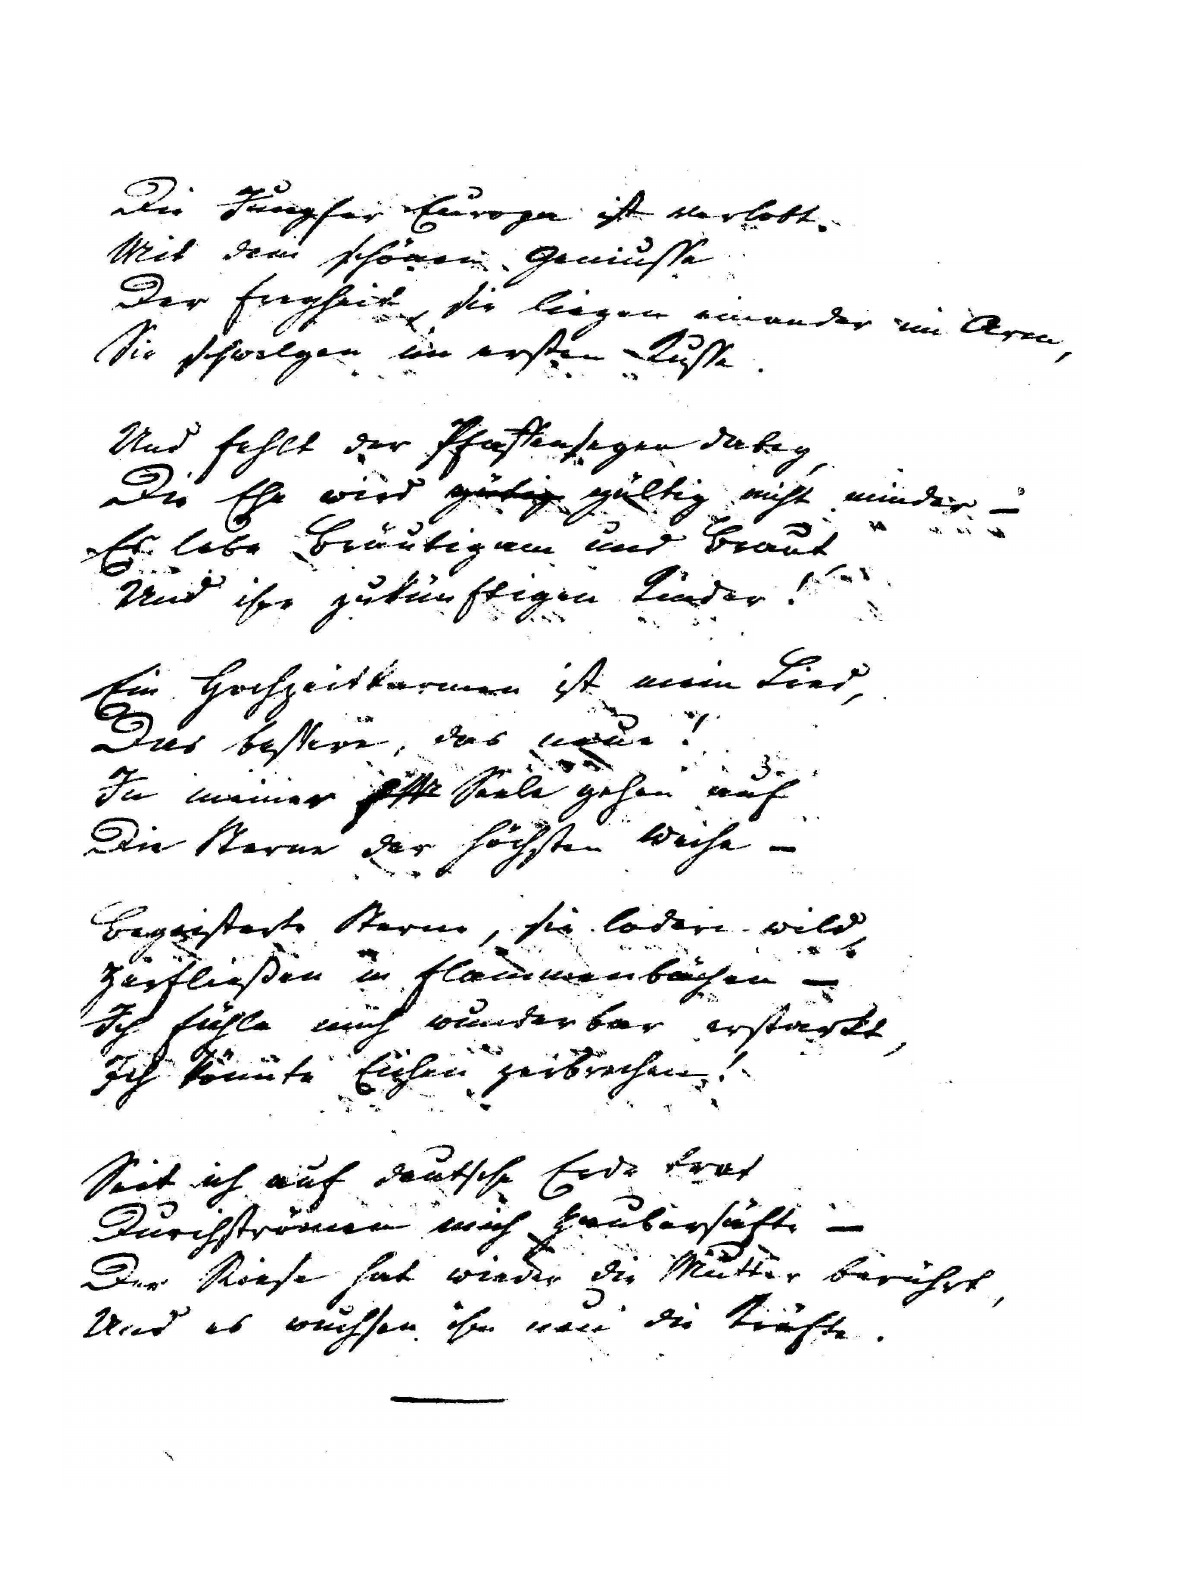 Die Jungfer Europa ist verlobt
Mit dem schönen Geniusse
Der Freyheit, sie liegen einander im Arm,
Sie schwelgen im ersten Kusse.
Und fehlt der Pfaffensegen dabey,
Die Ehe wird gültig nicht minder –
Es lebe Bräutigam und Braut
Und ihre zukünftigen Kinder!
Ein Hochzeitkarmen ist mein Lied,
Das bessere, das neue!
In meiner Seele gehen auf
Die Sterne der höchsten Weihe –
Begeisterte Sterne, sie lodern wild,
Zerfließen in Flammenbächen –
Ich fühle mich wunderbar erstarkt,
Ich könnte Eichen zerbrechen!
Seit ich auf deutsche Erde trat
Durchströmen mich Zaubersäfte –
Der Riese hat wieder die Mutter berührt,
Und es wuchsen ihm neu die Kräfte.